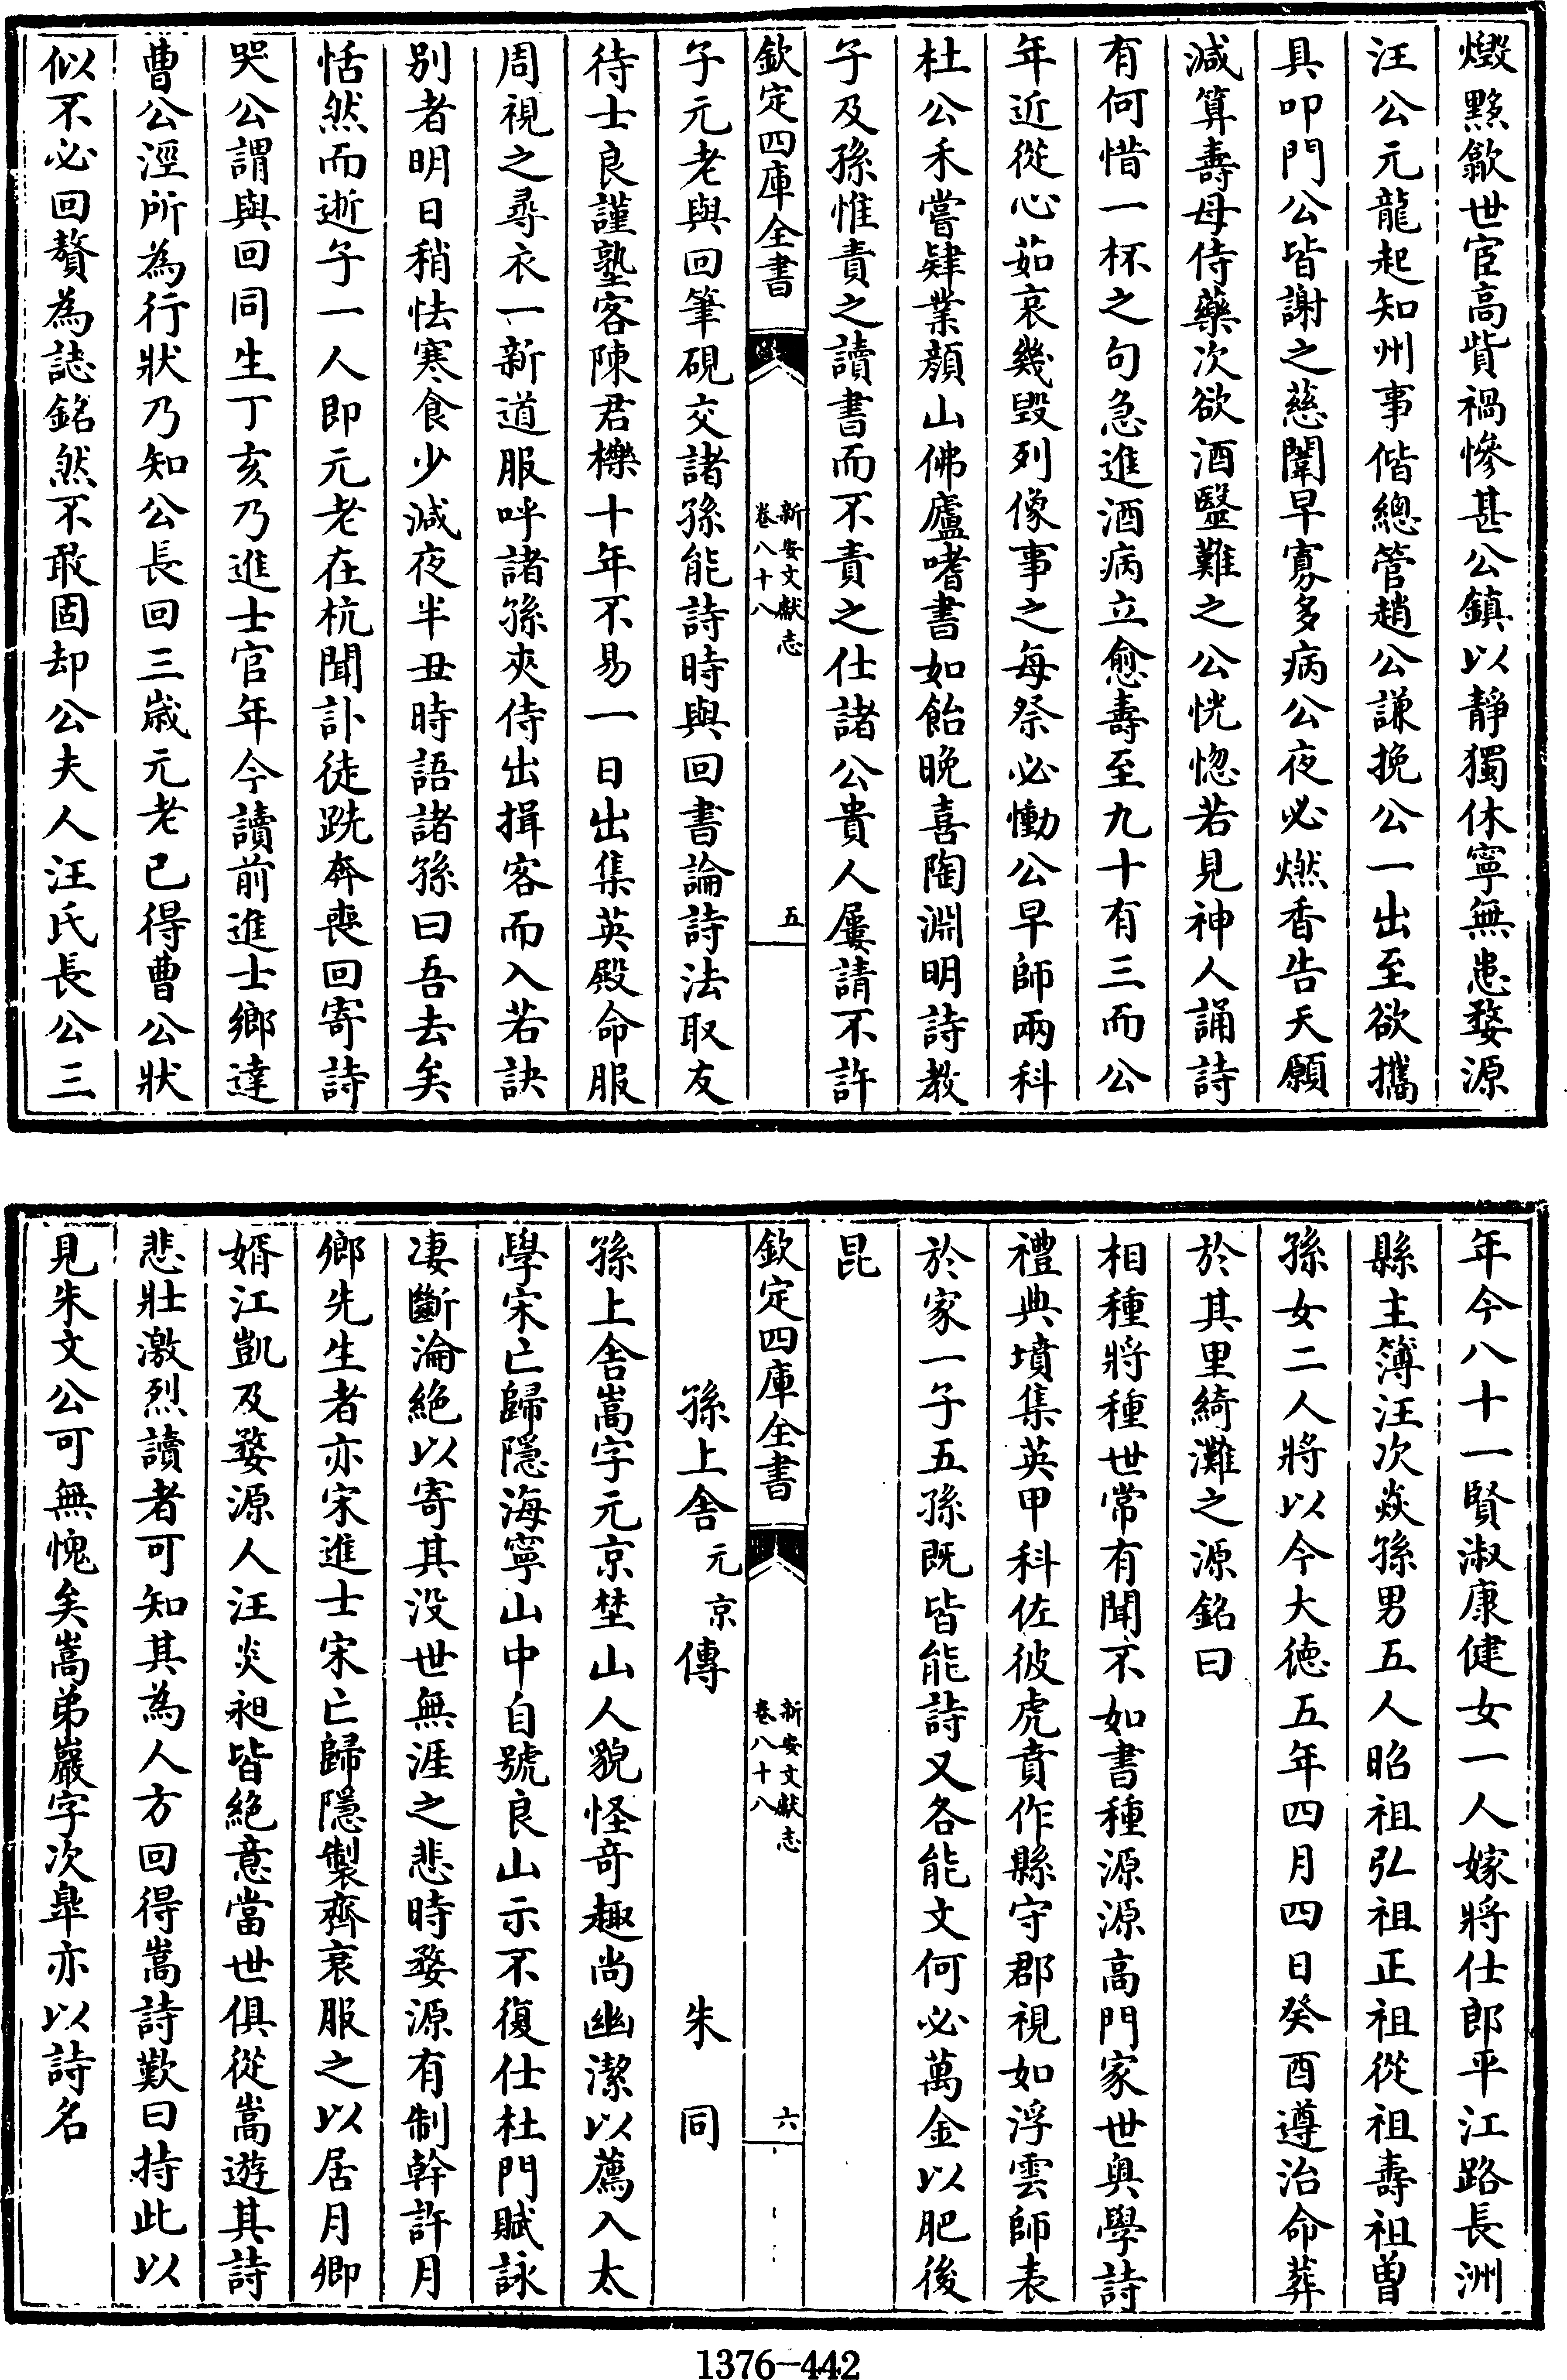 燬黟歙世宦高貲禍慘甚公鎮以靜獨休寧無患婺源
汪公元龍起知州事偕總管趙公謙挽公一出至欲攜
具叩門公皆謝之慈闈早寡多病公夜必燃香告天願
減算壽母侍藥次欲酒醫難之公恍惚若見神人誦詩
有何惜一杯之句急進酒病立愈壽至九十有三而公
年近從心茹哀幾毀列像事之每祭必慟公早師兩科
杜公禾嘗肄業顏山佛廬嗜書如飴晚喜陶淵明詩教
子及孫惟責之讀書而不責之仕諸公貴人屢請不許
欽定四庫全書
新安文獻志
卷八十八
五
子元老與回筆硯交諸孫能詩時與回書論詩法取友
待士良謹塾客陳君櫟十年不易一日出集英殿命服
周視之尋衣一新道服呼諸孫夾侍出揖客而入若訣
别者明日稍怯寒食少減夜半丑時語諸孫曰吾去矣
恬然而逝子一人即元老在杭聞訃徒跣奔喪回寄詩
哭公謂與回同生丁亥乃進士官年今讀前進士鄉達
曹公涇所為行狀乃知公長回三嵗元老已得曹公狀
似不必回贅為誌銘然不敢固却公夫人汪氏長公三
年今八十一賢淑康健女一人嫁將仕郎平江路長洲
縣主簿汪次焱孫男五人昭祖弘祖正祖從祖壽祖曽
孫女二人將以今大德五年四月四日癸酉遵治命葬
於其里綺灘之源銘曰
相種將種世常有聞不如書種源源高門家世與學詩
禮典墳集英甲科佐彼虎賁作縣守郡視如浮雲師表
於家一子五孫既皆能詩又各能文何必萬金以肥後
昆
欽定四庫全書
新安文獻志
卷八十八
六
孫上舍元京傳　朱同
孫上舍嵩字元京埜山人貌怪奇趣尚幽潔以薦入太
學宋亡歸隱海寧山中自號艮山示不復仕杜門賦詠
凄斷淪絶以寄其没世無涯之悲時婺源有制幹許月
卿先生者亦宋進士宋亡歸隱製齊衰服之以居月卿
婿江凱及婺源人汪炎昶皆絶意當世俱從嵩遊其詩
悲壯激烈讀者可知其為人方回得嵩詩歎曰持此以
見朱文公可無愧矣嵩弟巖字次臯亦以詩名
1376-442